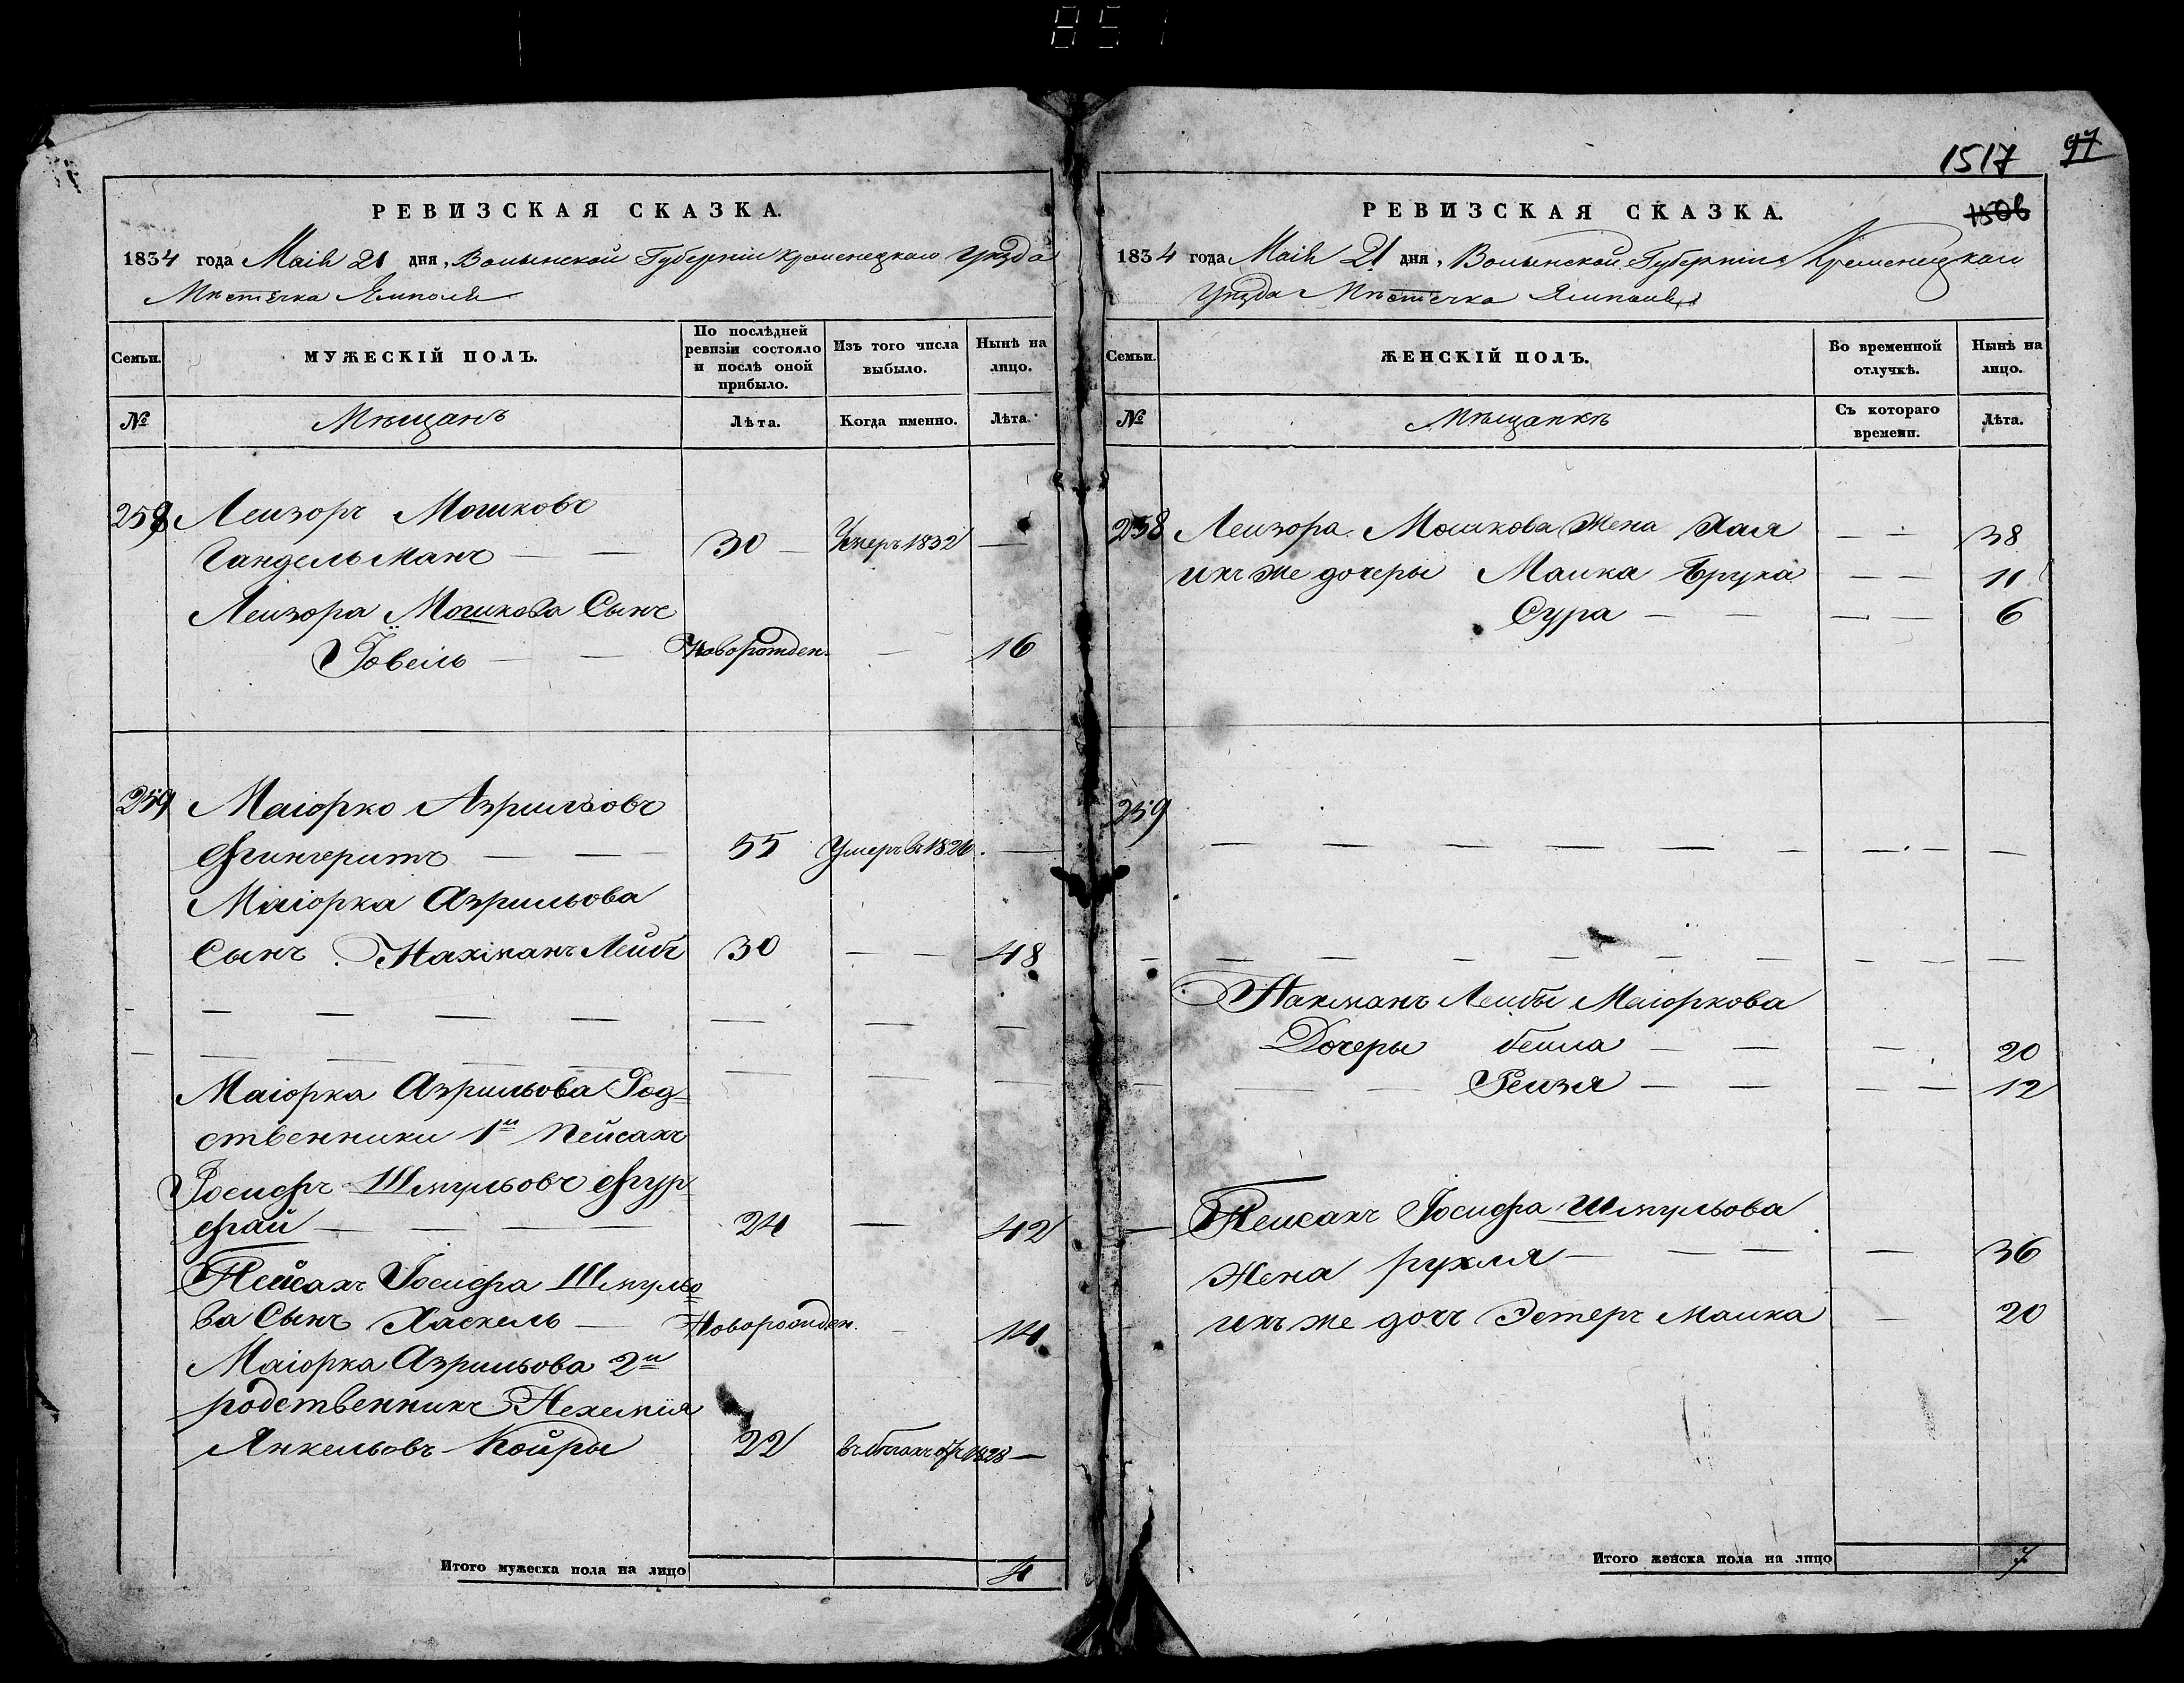 851
РЕВИЗСКАЯ СКАЗКА.
1834 года Маія 21 дня, Волынской Губерніи Кременецкаго Уѣзда
Мѣстечка Ямполя
Семьи.
МУЖЕСКІЙ ПОЛЪ.
По послѣдней ревизіи состояло и послѣ оной прибыло.
Изъ того числа выбыло.
Нынѣ на лицо.
№
Мѣщанъ
Лѣта.
Когда именно.
Лѣта.
258 Леизоръ Мошковъ
Гандельманъ — — 30 — Умеръ 1832 —
Леизора Мошкова Сынъ
Іовель — — Новорожден. — 16
259 Маіорко Азрильовъ
Фингеритъ — — 55 Умеръ въ 1826. —
Маіорка Азрильова
Сынъ Нахманъ Лейбъ 30 — — 48
Маіорка Азрильова Род=
ственники 1й Пейсахъ
Іосифъ Шмульовъ Фур
фай — — — — 24 — 42
Пейсахъ Іосифа Шмульо
ва Сынъ Хаскель — Новорожден. — 14
Маіорка Азрильова 2й
родственникъ Нехемія
Янкельовъ Койры 22 въ бѣгахъ съ 1828 —
Итого мужеска пола на лицо 4
1517 97
РЕВИЗСКАЯ СКАЗКА. 1506
1834 года Маія 21 дня, Волынской Губерніи Кременецкаго
Уѣзда Мѣстечка Ямполя
Семьи.
ЖЕНСКІЙ ПОЛЪ.
Во временной отлучкѣ.
Нынѣ на лицо.
№
Мѣщанкъ
Съ котораго времени.
Лѣта.
258 Леизора Мошкова Жена Хая — — 38
ихъ же дочеры Малка Брука — — 11
Сура — — — — 6
259
Нахманъ Лейбы Маіоркова
Дочеры Бейла — — — 20
Рейзя — — — — 12
Пейсахъ Іосифа Шмульова
Жена рухля — — — — 36
ихъ же дочъ Эстеръ Малка — 20
Итого женска пола на лицо 7